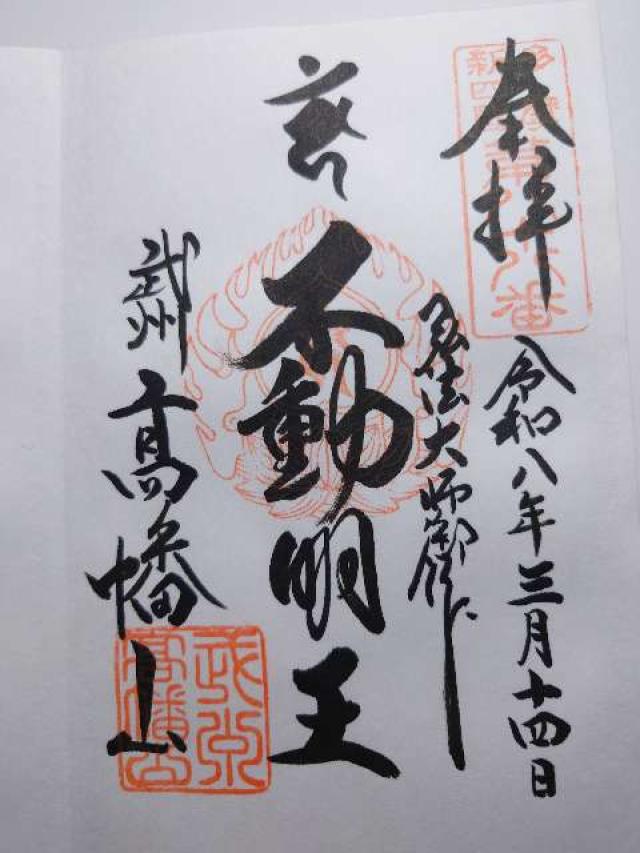 奉拝
令和八年三月十四日
弘法大師御作
不動明王
武州
高幡山